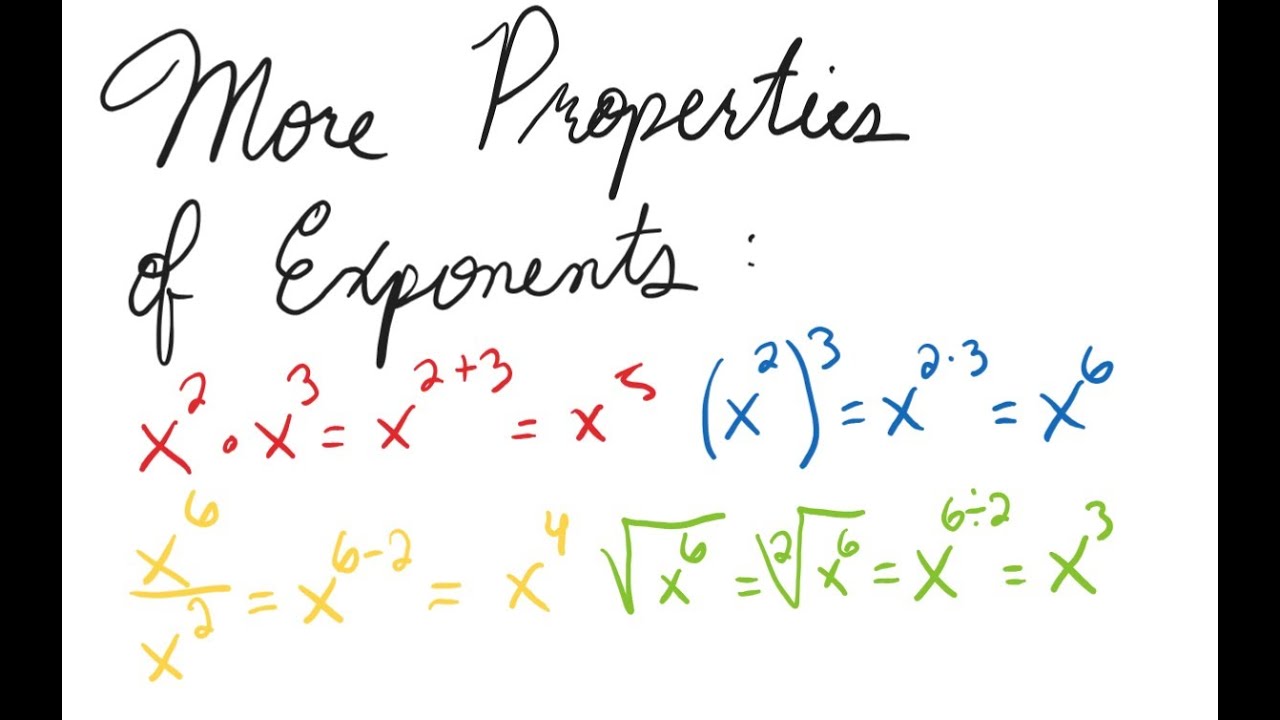 More Properties
of Exponents:
x² · x³ = x²⁺³ = x⁵ (x²)³ = x²˙³ = x⁶
x⁶/x² = x⁶⁻² = x⁴ √x⁶ = ²√x⁶ = x^(6÷2) = x³